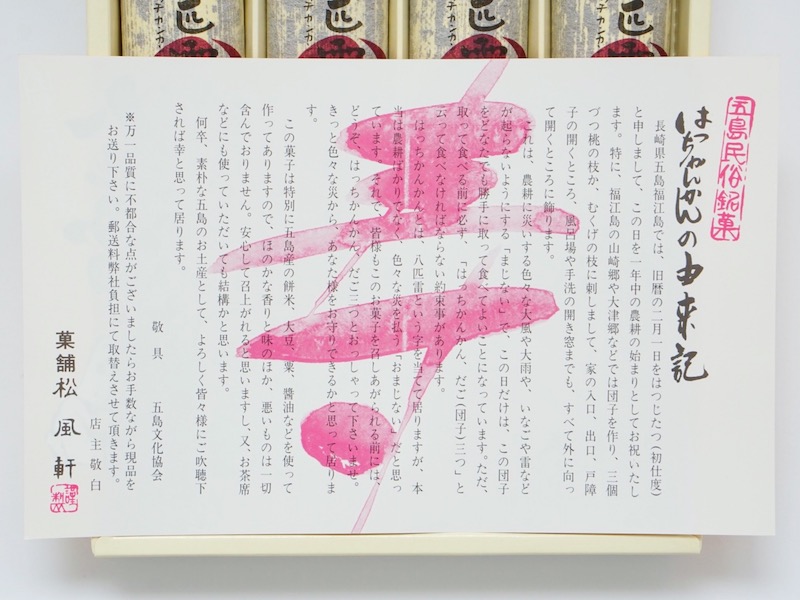 五島民俗銘菓
はっちかんかんの由来記
長崎県五島福江島では、旧暦の二月一日をはつじたつ(初仕度)
と申しまして、この日を一年中の農耕の始まりとしてお祝いたし
ます。特に、福江島の山崎郷や大津郷などでは団子を作り、三個
づつ桃の枝か、むくげの枝に刺しまして、家の入口、出口、戸障
子の開くところ、風呂場や手洗の開き窓までも、すべて外に向っ
て開くところに飾ります。
これは、農耕に災いする色々な大風や大雨や、いなごや雷など
が起らないようにする「まじない」で、この日だけは、この団子
をどなたでも勝手に取って食べてよいことになっています。ただ、
取って食べる前に必ず、「はっちかんかん、だご(団子)三つ」と
云って食べなければならない約束事があります。
はっちかんかんとは、八匹雷という字を当てて居りますが、本
当は農耕ばかりでなく、色々な災を払う「おまじない」だと思っ
ています。それで、皆様もこのお菓子を召しあがられる前には、
どうぞ、はっちかんかん、だご三つとおっしゃって下さいませ。
きっと色々な災から、あなた様をお守りできるかと思って居りま
す。
この菓子は特別に五島産の餅米、大豆、粟、醬油などを使って
作ってありますので、ほのかな香りと味のほか、悪いものは一切
含んでおりません。安心して召上がれると思いますし、又、お茶席
などにも使っていただいても結構かと思います。
何卒、素朴な五島のお土産として、よろしく皆々様にご吹聴下
されば幸と思って居ります。
敬具
五島文化協会
※万一品質に不都合な点がございましたらお手数ながら現品を
お送り下さい。郵送料弊社負担にて取替えさせて頂きます。
店主敬白
菓舗松風軒